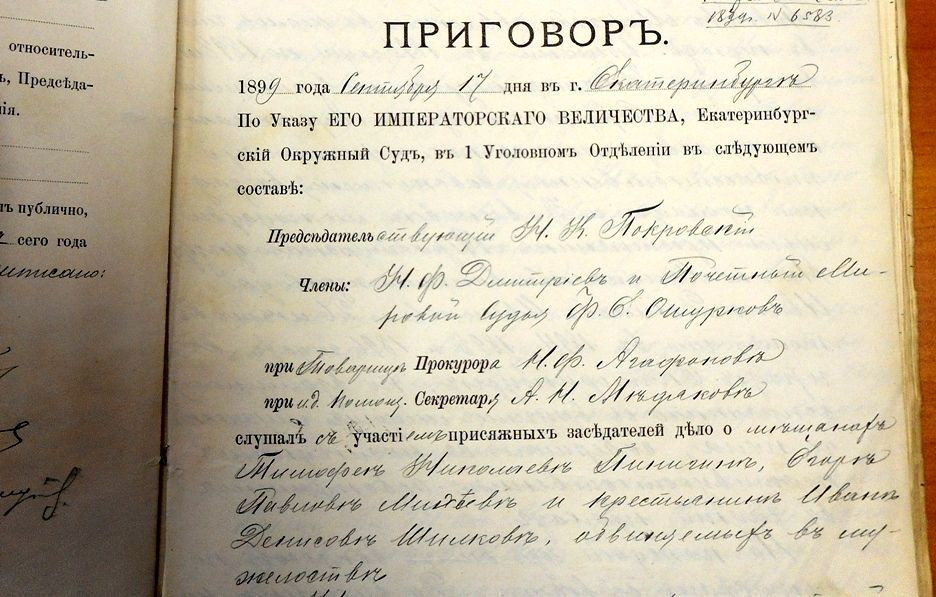 относитель-
ъ, Предсѣда-
ія.
лъ публично,
сего года
1899г. N 6583.
ПРИГОВОРЪ.
1899 года Сентября 17 дня въ г. Екатеринбургѣ
По Указу ЕГО ИМПЕРАТОРСКАГО ВЕЛИЧЕСТВА, Екатеринбург-
скій Окружный Судъ, въ 1 Уголовномъ Отдѣленіи въ слѣдующемъ
составѣ:
Предсѣдательствующій Н. К. Покровскій
Члены: Н. Ф. Дмитріевъ и Почетный Ми-
ровой Судья Ф. С. Ошурковъ
при Товарищѣ Прокурора Н. Ф. Агафоновѣ
при и.д. Помощ. Секретаря А. И.
слушалъ съ участіемъ присяжныхъ засѣдателей дѣло о мѣщанахъ
Тимофеѣ Николаевѣ Пинигинѣ, Егорѣ
Павловѣ Михѣевѣ и крестьянинѣ Иванѣ
Денисовѣ Шилковѣ, обвиняемыхъ въ му-
желоствѣ